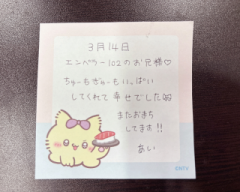 3月14日
エンペラー102のお兄様♡
ちゅーもぎゅーもいっぱい
してくれて幸せでした
またおまち
してます!!
あい